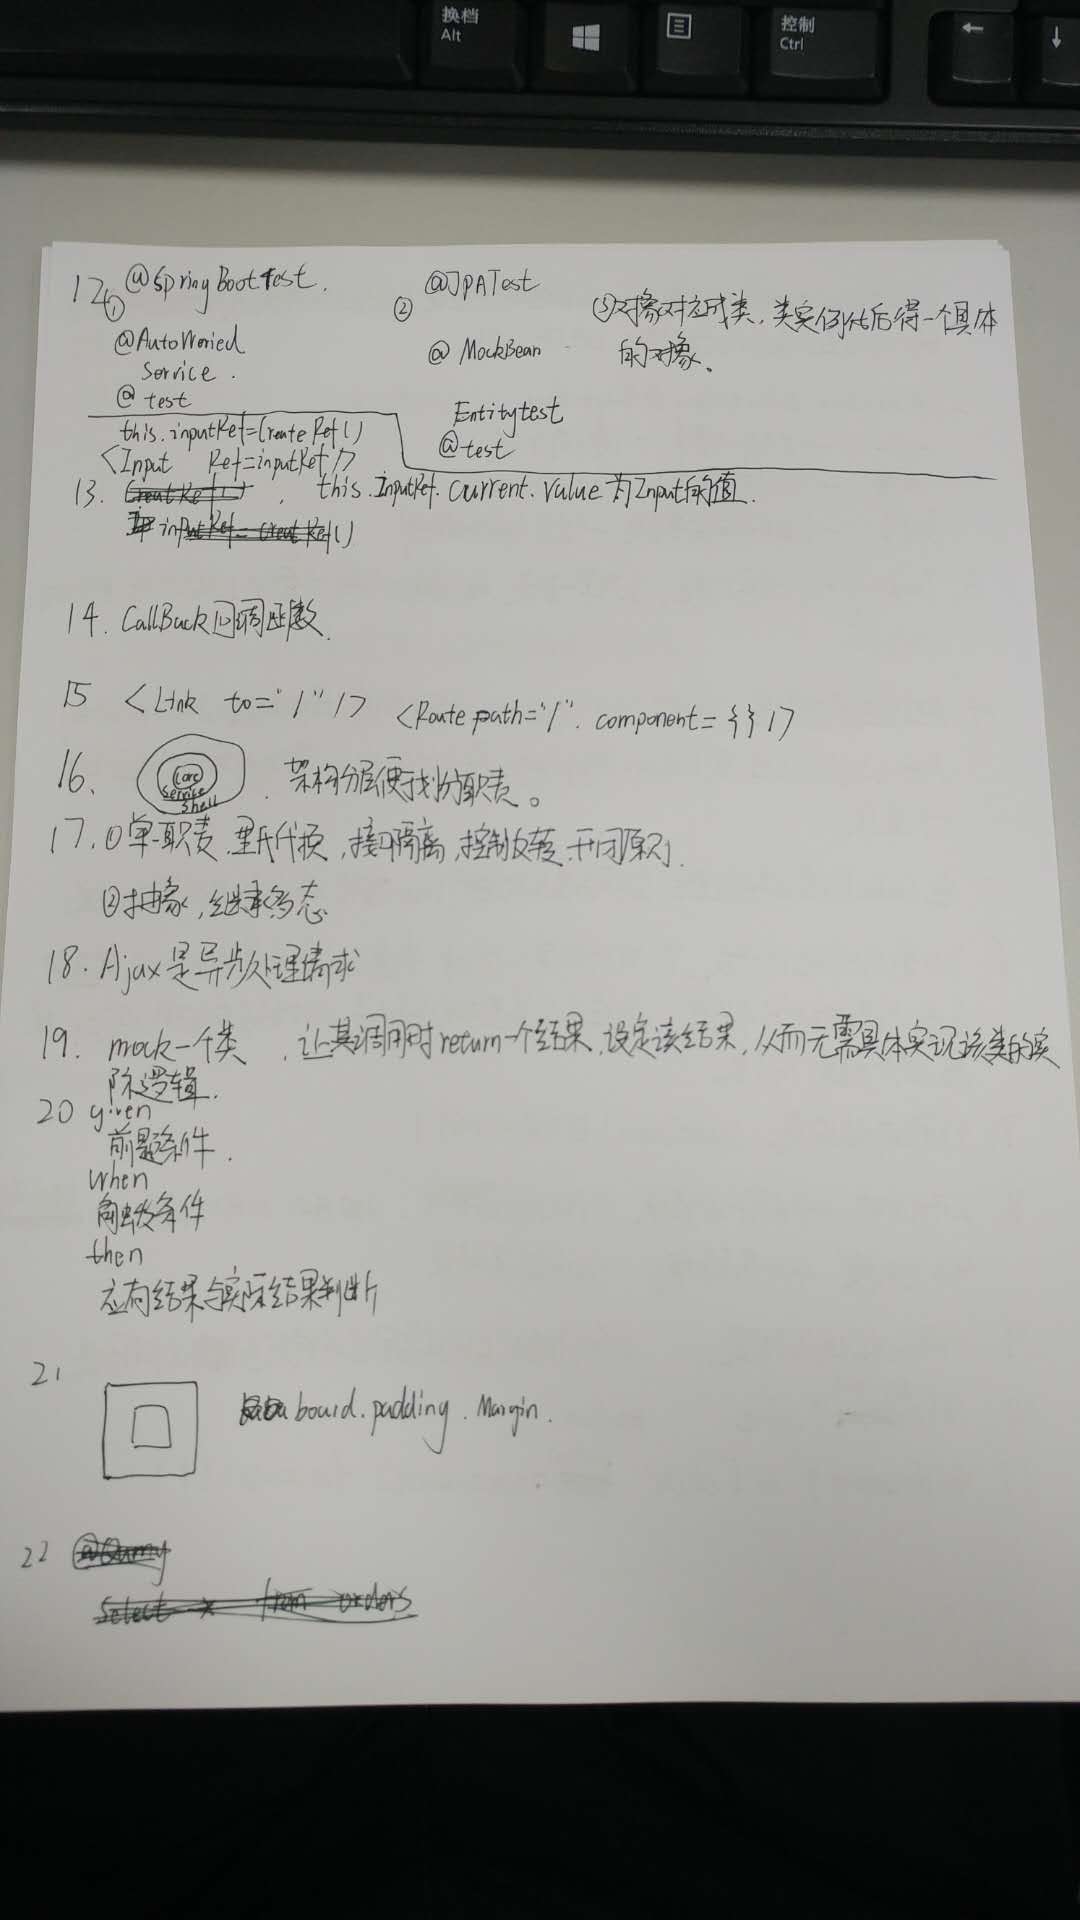 换档
Alt
控制
Ctrl
12.
① @SpringBootTest.
@AutoWoried
Service.
@test
② @JPATest
@MockBean
Entitytest
@test
③对象对应成类,类实例化后得一个具体
的对象。
this.inputRef=CreateRef()
<Input Ref=inputRef'/>
13. this.InputRef.Current.Value为Input的值.
14. CallBack回调函数.
15 <Link to="/" /> <Route path="/". component={}} />
16、 Core
Service
Shell
架构分层便于划分职责。
17.①单一职责,里氏代换,接口隔离,控制反转,开闭原则.
②抽象,继承,多态
18.Ajax是异步处理请求
19. mock一个类,让其调用时return一个结果,设定该结果,从而无需具体实现该类的实
际逻辑.
20 given
前提条件.
when
触发条件
then
应有结果与实际结果判断
21 board.padding.Margin.
22
Select * from orders